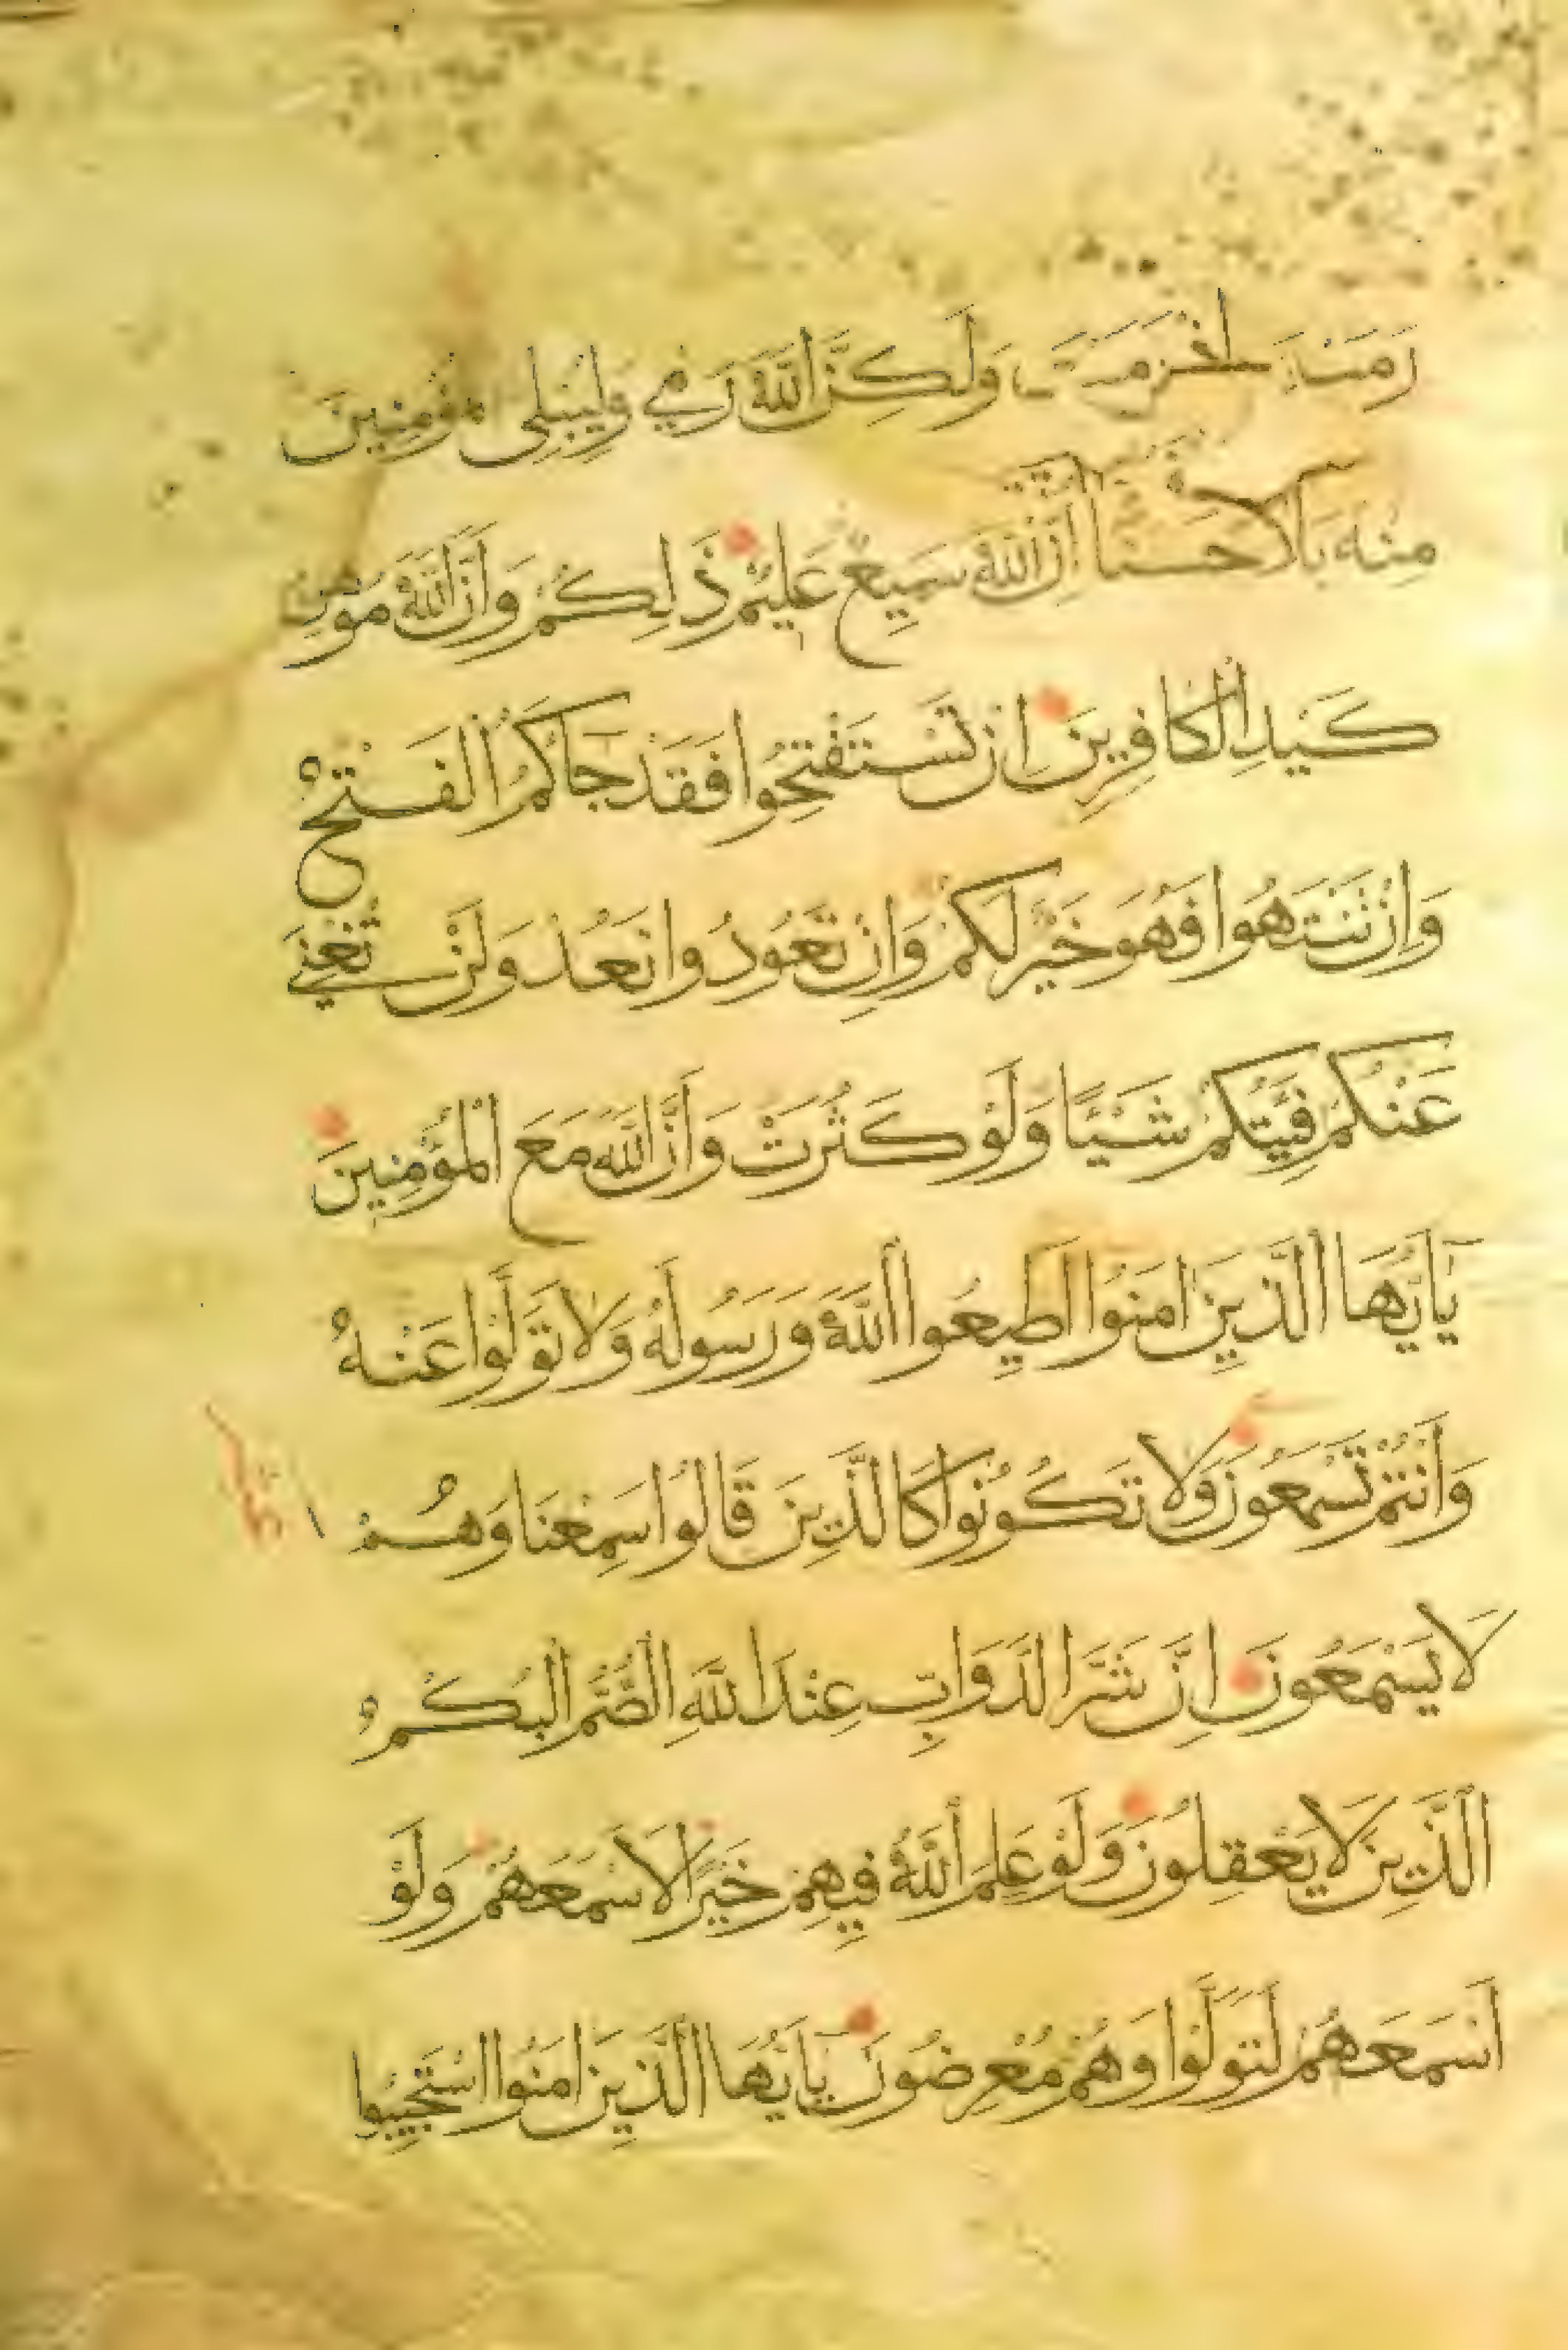 رَمَيْتَ اِذْ رَمَيْتَ وَلَكِنَّ اللَّهَ رَمٰي وَلِيُبْلِيَ الْمُؤْمِنِينَ
مِنْهُ بَلَآءً حَسَنًا اِنَّ اللَّهَ سَمِيعٌ عَلِيمٌ ذَلِكُمْ وَاَنَّ اللَّهَ مُوهِنُ
كَيْدِ الْكَافِرِينَ اِنْ تَسْتَفْتِحُوا فَقَدْ جَاكُمُ الْفَتْحُ
وَاِنْ تَنْتَهُوا فَهُوَ خَيْرٌ لَكُمْ وَاِنْ تَعُودُوا نَعُدْ وَلَنْ تُغْنِيَ
عَنْكُمْ فِئَتُكُمْ شَيْئًا وَلَوْ كَثُرَتْ وَاَنَّ اللَّهَ مَعَ الْمُؤْمِنِينَ
يَاَيُّهَا الَّذِينَ امَنُوا اَطِيعُوا اللَّهَ وَرَسُولَهُ وَلَا تَوَلَّوْا عَنْهُ
وَاَنْتُمْ تَسْمَعُونَ وَلَا تَكُونُوا كَالَّذِينَ قَالُوا سَمِعْنَا وَهُمْ
لَا يَسْمَعُونَ اِنَّ شَرَّ الدَّوَابِّ عِنْدَ اللَّهِ الصُّمُّ الْبُكْمُ
الَّذِينَ لَا يَعْقِلُونَ وَلَوْ عَلِمَ اللَّهُ فِيهِمْ خَيْرًا لَاَسْمَعَهُمْ وَلَوْ
اَسْمَعَهُمْ لَتَوَلَّوْا وَهُمْ مُعْرِضُونَ يَاَيُّهَا الَّذِينَ امَنُوا اسْتَجِيبُوا